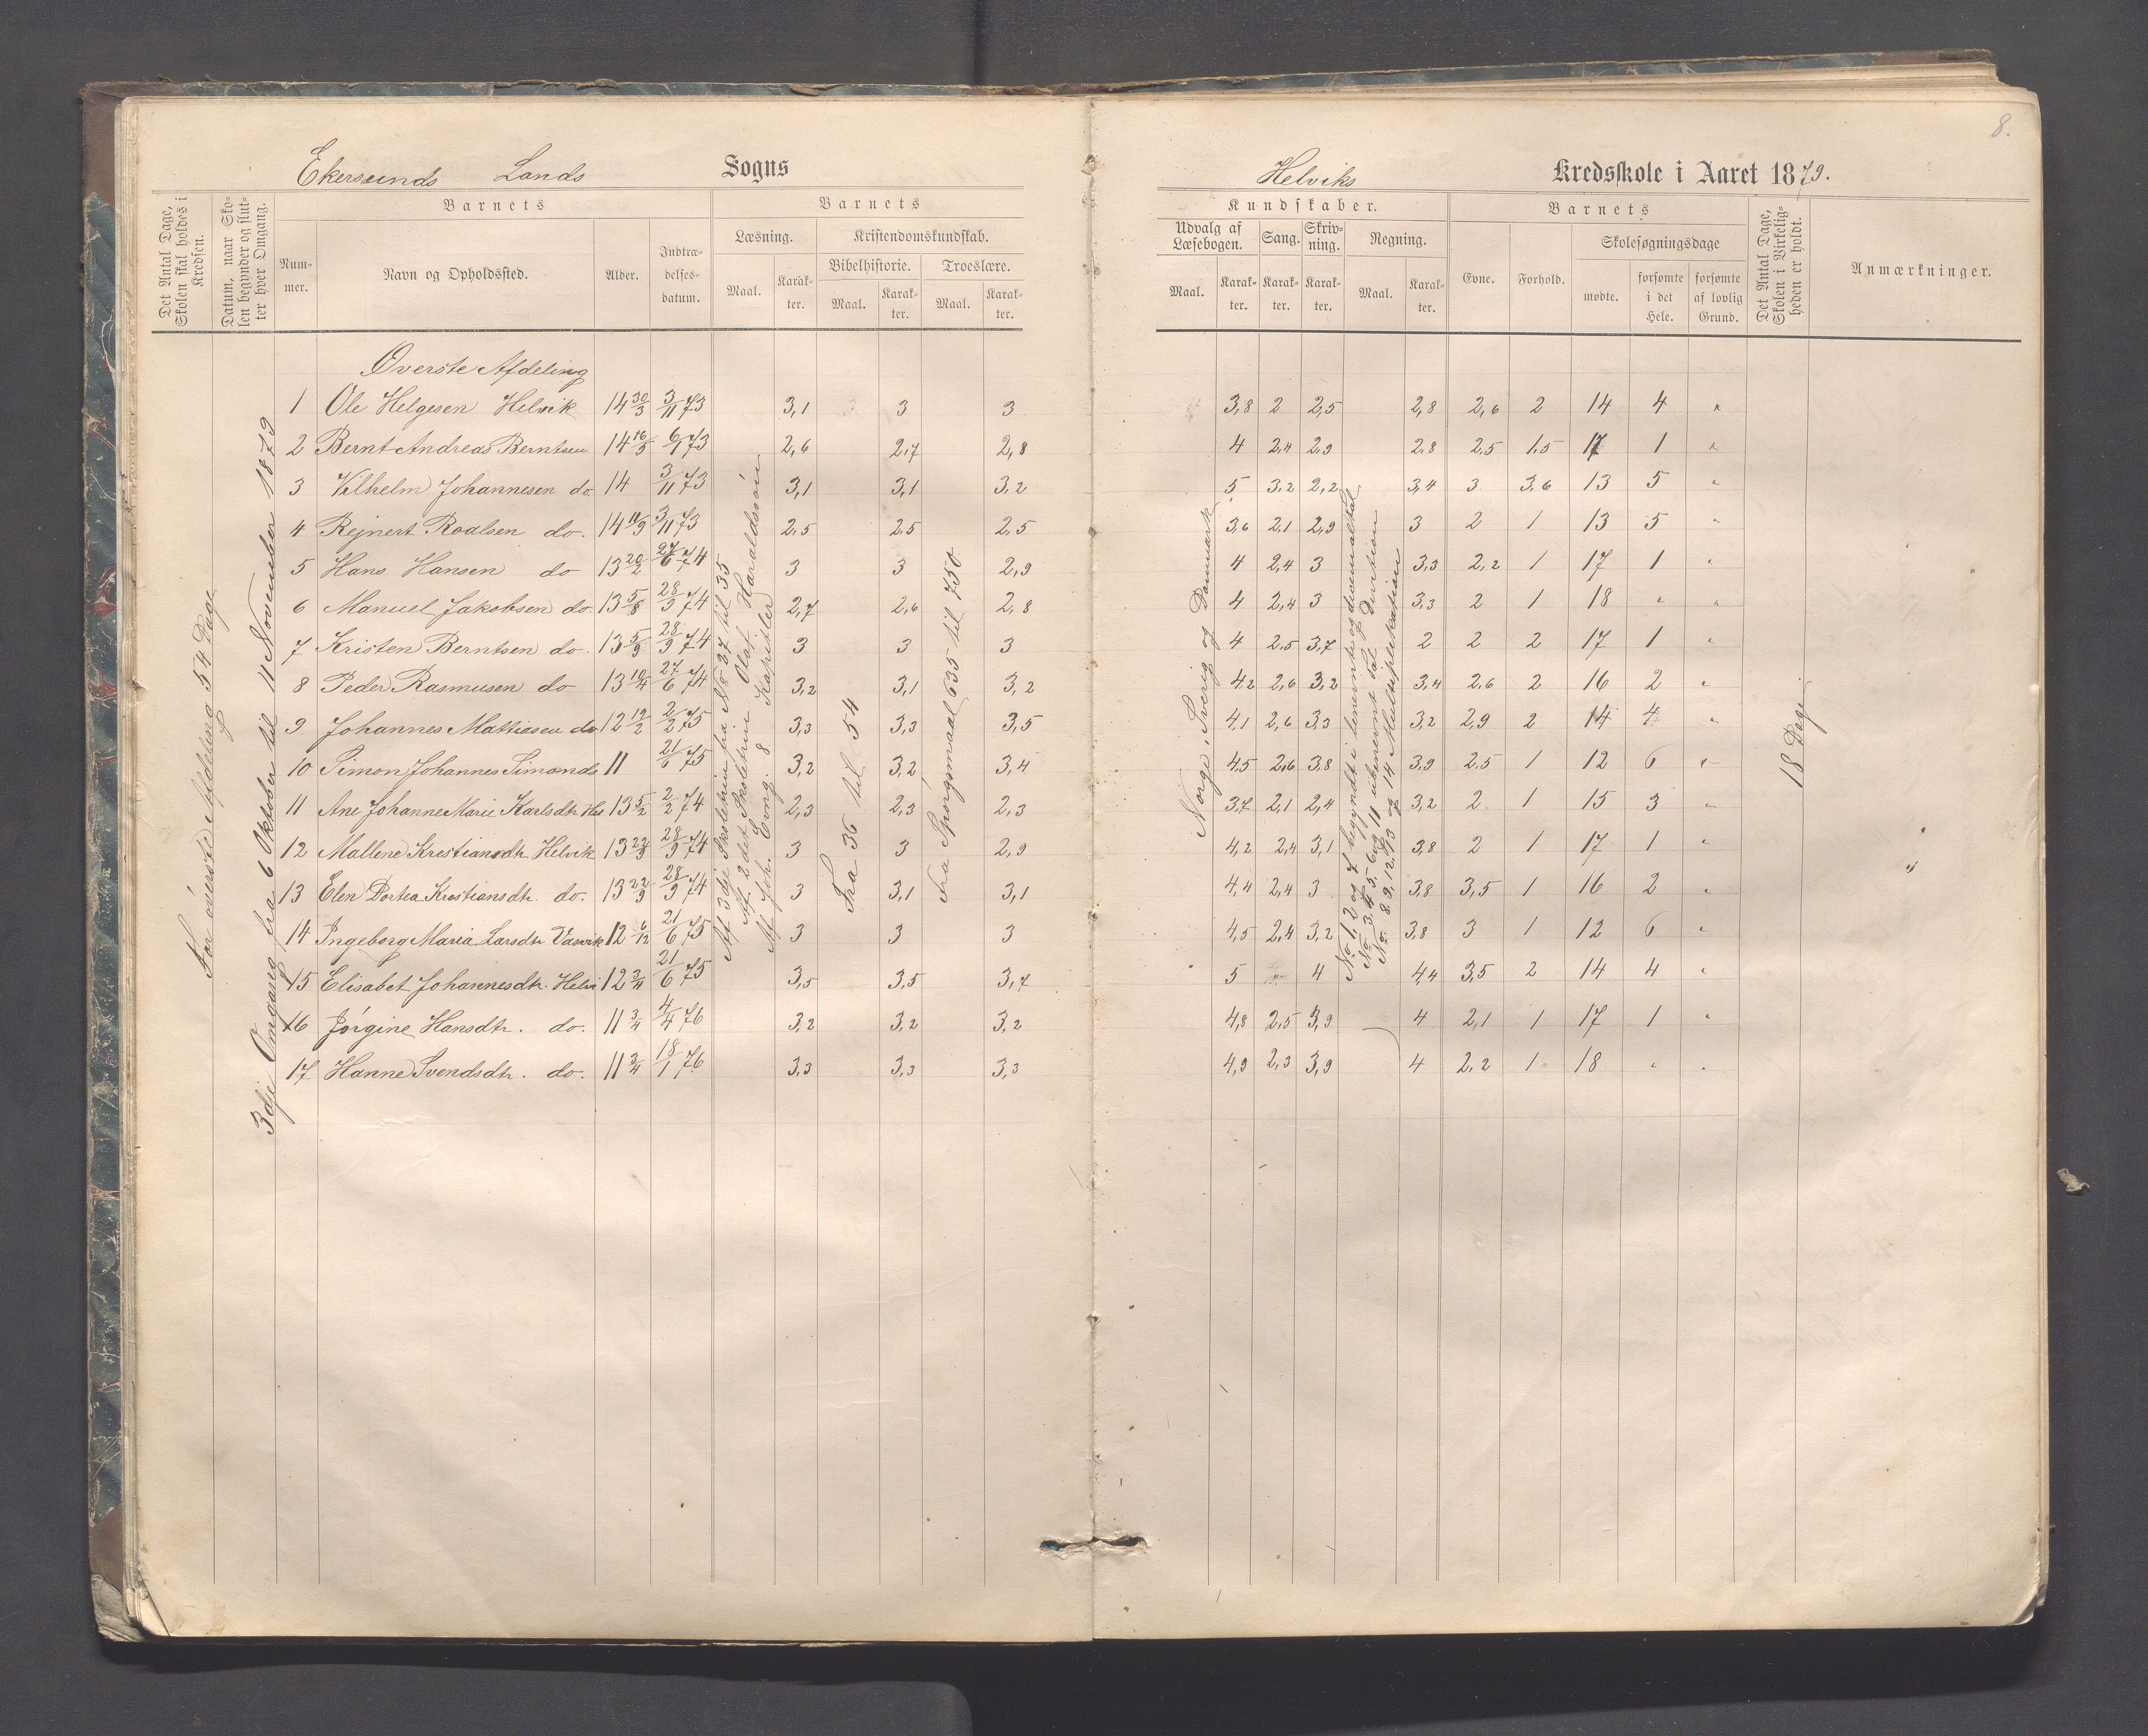 8.
Ekersunds Lands Sogns
Helviks Kredsskole i Aaret 1879.
Det Antal Dage, Skolen skal holdes i Kredsen.
Datum, naar Skolen begynder og slutter hver Omgang.
Barnets
Nummer.
Navn og Opholdssted.
Alder.
Indtrædelsesdatum.
Barnets
Læsning.
Maal.
Karakter.
Kristendomskundskab.
Bibelhistorie.
Maal.
Karakter.
Troeslære.
Maal.
Karakter.
Kundskaber.
Udvalg af Læsebogen.
Maal.
Karakter.
Sang.
Karakter.
Skrivning.
Karakter.
Regning.
Maal.
Karakter.
Barnets
Evne.
Forhold.
Skolesøgningsdage
mødte.
forsømte i det Hele.
forsømte af lovlig Grund.
Det Antal Dage, Skolen i Virkeligheden er holdt.
Anmærkninger.
For øverste Afdeling 54 Dage
3dje Omgang fra 6 Oktober til 11 November 1879
Øverste Afdeling
1 Ole Helgesen Helvik 14 30/3 3/11 73 3,1 3 3 3,8 2 2,5 2,8 2,6 2 14 4 "
2 Bernt Andreas Berntsen 14 16/5 6/1 73 2,6 2,7 2,8 4 2,4 2,9 2,8 2,5 1,5 17 1 "
3 Vilhelm Johannesen do 14 3/11 73 3,1 3,1 3,2 5 3,2 2,2 3,4 3 3,6 13 5 "
4 Rejnert Roalsen do. 14 11/9 3/11 73 2,5 2,5 2,5 3,6 2,1 2,9 3 2 1 13 5 "
5 Hans Hansen do 13 20/2 27/6 74 3 3 2,9 4 2,4 3 3,3 2,2 1 17 1 "
6 Manuel Jakobsen do. 13 5/8 28/9 74 2,7 2,6 2,8 4 2,4 3 3,3 2 1 18 " "
7 Kristen Berntsen do. 13 5/9 28/9 74 3 3 3 4 2,5 3,7 2 2 2 17 1 "
8 Peder Rasmusen do 13 10/4 27/6 74 3,2 3,1 3,2 4,2 2,6 3,2 3,4 2,6 2 16 2 "
9 Johannes Mattiesen do 12 19/2 2/2 75 3,3 3,3 3,5 4,1 2,6 3,3 3,2 2,9 2 14 4 "
10 Simon Johannes Simonds 11 21/6 75 3,2 3,2 3,4 4,5 2,6 3,8 3,9 2,5 1 12 6 "
11 Ane Johanne Marie Karlsdtr Hel 13 5/2 2/2 74 2,3 2,3 2,3 3,7 2,1 2,4 3,2 2 1 15 3 "
12 Mallene Krestiansdtr Helvik 13 22/9 28/9 74 3 3 2,9 4,2 2,4 3,1 3,8 2 1 17 1 "
13 Elen Dortea Krestiansdtr. do. 13 22/9 28/9 74 3 3,1 3,1 4,4 2,4 3 3,8 3,5 1 16 2 "
14 Ingeborg Maria Larsdtr Vasvik 12 6/12 21/6 75 3 3 3 4,5 2,4 3,2 3,8 3 1 12 6 "
15 Elisabet Johannesdtr. Helvi 12 3/4 21/6 75 3,5 3,5 3,7 5 " 4 4,4 3,5 2 14 4 "
16 Jørgine Hansdtr. do. 11 3/4 4/4 76 3,2 3,2 3,2 4,8 2,5 3,9 4 2,1 1 17 1 "
17 Hanne Svendsdtr. do. 11 3/4 18/1 76 3,3 3,3 3,3 4,9 2,3 3,9 4 2,2 1 18 " "
Af 3dje Skoletrin fra No 27 til 35
Af 2det Skoletrin Olaf Haraldsøn
Af Joh. Evng. 8 Kapitler
Fra 36 til 54
Fra Spørgsmaal 635 til 750
Norge, Sverig og Danmark
No 1, 2 og 7 begyndt i benevnte og decimaltal
No 3, 4, 5, 6 og 11 ubenevnt Tal Division
No. 8, 9, 12, 13 og 14 Multiplikation
18 Dage
"